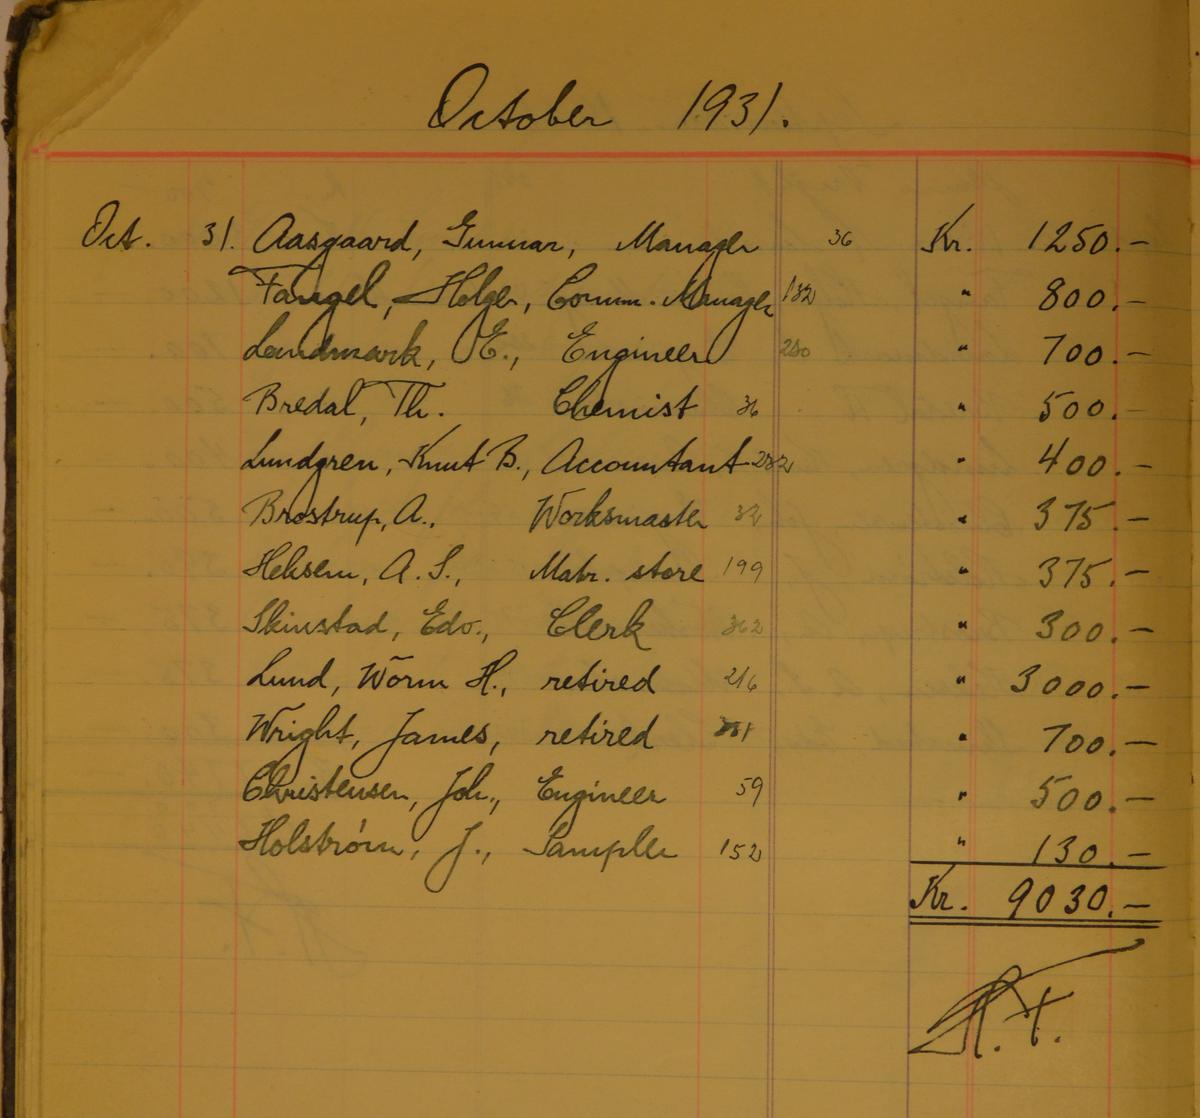 October 1931.
Oct. 31. Aasgaard, Gunnar, Manager 36 Kr. 1250.-
Fangel, Holger, Comm. Manager 132 " 800.-
Landmark, E., Engineer 280 " 700.-
Bredal, Th. Chemist 36 " 500.-
Lundgren, Knut B., Accountant " 400.-
Brostrup, A., Worksmaster 32 " 375.-
Heksem, A. S., Matr. store 199 " 375.-
Skinstad, Edv., Clerk 362 " 300.-
Lund, Worm H., retired 216 " 3000.-
Wright, James, retired " 700.-
Christensen, Joh., Engineer 59 " 500.-
Holstróm, J., Sampler 152 " 130.-
Kr. 9030.-
H.F.